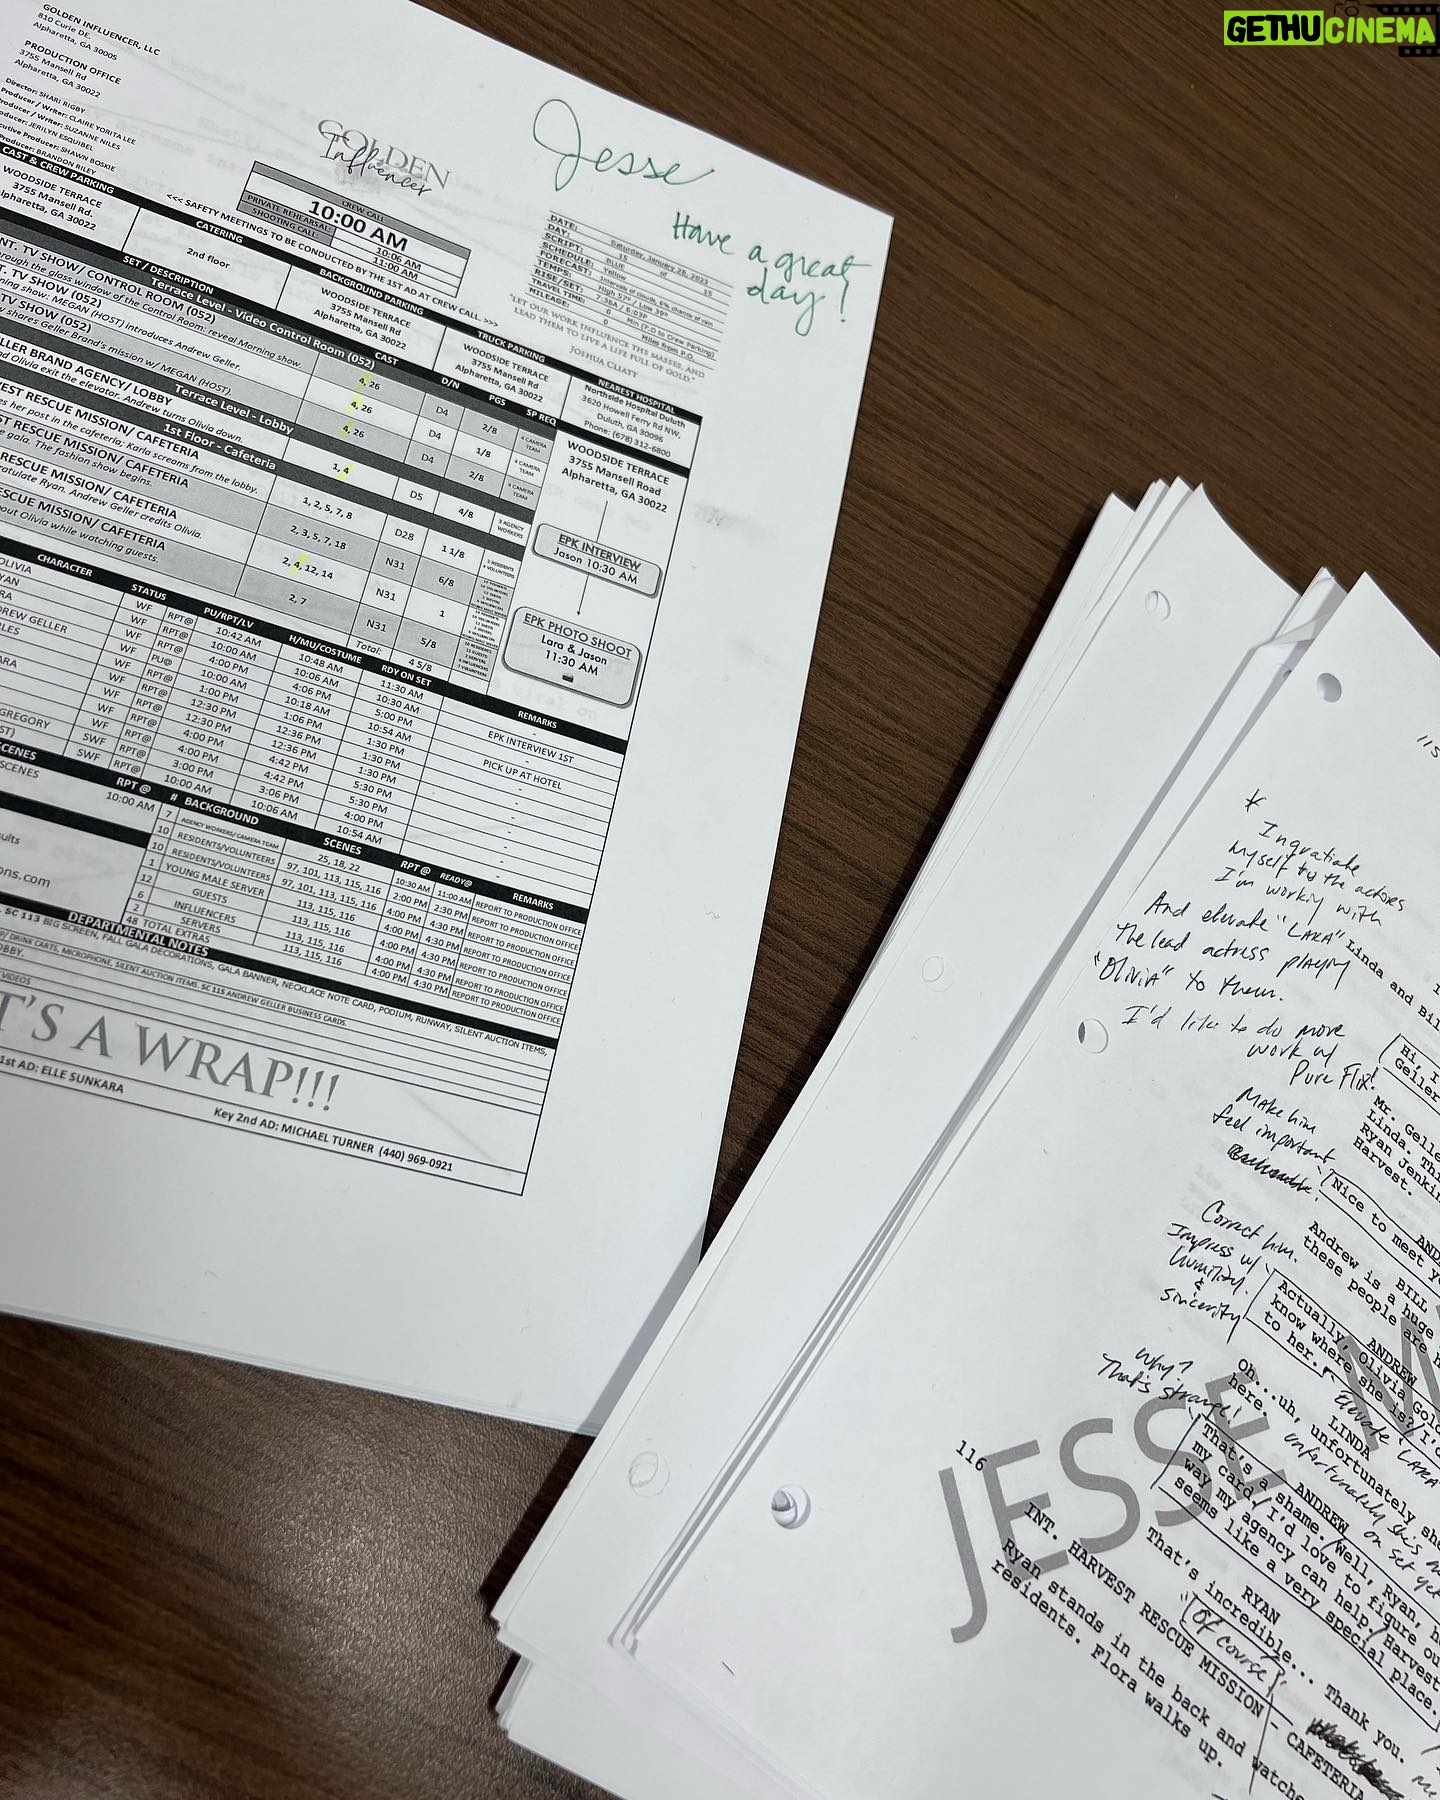 GETHUCINEMA
GOLDEN INFLUENCER, LLC
810 Curie DE.
Alpharetta, GA 30005
PRODUCTION OFFICE
3755 Mansell Rd
Alpharetta, GA 30022
Director: SHARI RIGBY
Producer / Writer: CLAIRE YORITA LEE
Producer / Writer: SUZANNE NILES
JERILYN ESQUIBEL
Executive Producer: SHAWN BOSKIE
Producer: BRANDON RILEY
GOLDEN
Influencer
Jesse
Have a great
day!
CREW CALL
10:00 AM
PRIVATE REHEARSAL: 10:06 AM
SHOOTING CALL: 11:00 AM
<<< SAFETY MEETINGS TO BE CONDUCTED BY THE 1ST AD AT CREW CALL. >>>
DATE: Saturday, January 28, 2023
DAY: 15 of 15
SCRIPT: BLUE
SCHEDULE: Yellow
FORECAST: Intervals of clouds, 6% chance of rain
TEMPS: High 57° / Low 39°
RISE/SET: 7:36A / 6:03P
TRAVEL TIME: 0 Min (P.O to Crew Parking)
MILEAGE: 0 Miles from P.O.
"LET OUR WORK INFLUENCE THE MASSES, AND
LEAD THEM TO LIVE A LIFE FULL OF GOLD."
JOSHUA CLIATT
CAST & CREW PARKING
WOODSIDE TERRACE
3755 Mansell Rd.
Alpharetta, GA 30022
CATERING
2nd floor
BACKGROUND PARKING
WOODSIDE TERRACE
3755 Mansell Rd
Alpharetta, GA 30022
TRUCK PARKING
WOODSIDE TERRACE
3755 Mansell Rd
Alpharetta, GA 30022
NEAREST HOSPITAL
Northside Hospital Duluth
3620 Howell Ferry Rd NW,
Duluth, GA 30096
Phone: (678) 312-6800
SET / DESCRIPTION CAST D/N PGS SP REQ
Terrace Level - Video Control Room (052)
INT. TV SHOW/ CONTROL ROOM (052) 4, 26 D4 2/8
through the glass window of the Control Room: reveal Morning show.
TV SHOW (052) 4, 26 D4 1/8
morning show: MEGAN (HOST) introduces Andrew Geller.
TV SHOW (052) 4, 26 D4 2/8
shares Geller Brand's mission w/ MEGAN (HOST).
Terrace Level - Lobby
GELLER BRAND AGENCY/ LOBBY 1, 4 D5 4/8
and Olivia exit the elevator. Andrew turns Olivia down.
1st Floor - Cafeteria
HARVEST RESCUE MISSION/ CAFETERIA 1, 2, 5, 7, 8 D28 1 1/8
her post in the cafeteria; Karla screams from the lobby.
RESCUE MISSION/ CAFETERIA 2, 3, 5, 7, 18 N31 6/8
gala. The fashion show begins.
RESCUE MISSION/ CAFETERIA 2, 4, 12, 14 N31 1
Ryan. Andrew Geller credits Olivia.
RESCUE MISSION/ CAFETERIA 2, 7 N31 5/8
about Olivia while watching guests.
Total: 4 5/8
WOODSIDE TERRACE
3755 Mansell Road
Alpharetta, GA 30022
EPK INTERVIEW
Jason 10:30 AM
EPK PHOTO SHOOT
Lara & Jason
11:30 AM
CHARACTER STATUS PU/RPT/LV H/MU/COSTUME RDY ON SET REMARKS
OLIVIA WF RPT@ 10:42 AM 10:48 AM 11:30 AM
RYAN WF RPT@ 10:00 AM 10:06 AM 10:30 AM EPK INTERVIEW 1ST
WF RPT@ 4:00 PM 4:06 PM 5:00 PM
ANDREW GELLER WF PU@ 10:00 AM 10:18 AM 10:54 AM PICK UP AT HOTEL
WF RPT@ 1:00 PM 1:06 PM 1:30 PM
WF RPT@ 12:30 PM 12:36 PM 1:30 PM
WF RPT@ 12:30 PM 12:36 PM 1:30 PM
WF RPT@ 4:00 PM 4:42 PM 5:30 PM
GREGORY SWF RPT@ 4:00 PM 4:42 PM 5:30 PM
SWF RPT@ 3:00 PM 3:06 PM 4:00 PM
10:00 AM 10:06 AM 10:54 AM
SCENES RPT @ # BACKGROUND SCENES RPT @ READY@ REMARKS
10:00 AM 7 AGENCY WORKERS/ CAMERA TEAM 25, 18, 22 10:30 AM 11:00 AM REPORT TO PRODUCTION OFFICE
10 RESIDENTS/VOLUNTEERS 97, 101, 113, 115, 116 2:00 PM 2:30 PM REPORT TO PRODUCTION OFFICE
10 RESIDENTS/VOLUNTEERS 97, 101, 113, 115, 116 4:00 PM 4:30 PM REPORT TO PRODUCTION OFFICE
1 YOUNG MALE SERVER 113, 115, 116 4:00 PM 4:30 PM REPORT TO PRODUCTION OFFICE
12 GUESTS 113, 115, 116 4:00 PM 4:30 PM REPORT TO PRODUCTION OFFICE
6 INFLUENCERS 113, 115, 116 4:00 PM 4:30 PM REPORT TO PRODUCTION OFFICE
2 SERVERS 113, 115, 116 4:00 PM 4:30 PM REPORT TO PRODUCTION OFFICE
48 TOTAL EXTRAS
DEPARTMENTAL NOTES
SC 113 BIG SCREEN, FALL GALA DECORATIONS, GALA BANNER, NECKLACE NOTE CARD, PODIUM, RUNWAY, SILENT AUCTION ITEMS,
DRINK CARTS, MICROPHONE, SILENT AUCTION ITEMS. SC 115 ANDREW GELLER BUSINESS CARDS.
LOBBY.
VIDEOS
T'S A WRAP!!!
1st AD: ELLE SUNKARA
Key 2nd AD: MICHAEL TURNER (440) 969-0921
115
*
Ingratiate
myself to the actors
I'm working with
And elevate "LARA"
The lead actress playing
"OLIVIA" to them.
I'd like to do more
work w/
Pure Flix!
Make him
feel important
Correct him.
Impress w/
humility
&
sincerity
Why?
That's strange!
Linda and Bil
Hi, I
Geller
Mr. Gelle
Linda. Thi
Ryan Jenkin
Harvest.
Nice to meet y
BILL
Andrew is a huge
these people are h
ANDREW
Actually, Olivia Gold
know where she is? I'd
to her.
Elevate "LARA"
LINDA
Oh...uh, unfortunately she
here.
unfortunately she's
on set yet
ANDREW
That's a shame. Well, Ryan, h
my card. I'd love to figure ou
way my agency can help. Harvest
seems like a very special place.
RYAN
That's incredible... Thank you.
of course
JESSE M
116
INT. HARVEST RESCUE MISSION - CAFETERIA
Ryan stands in the back and watche
residents. Flora walks up.